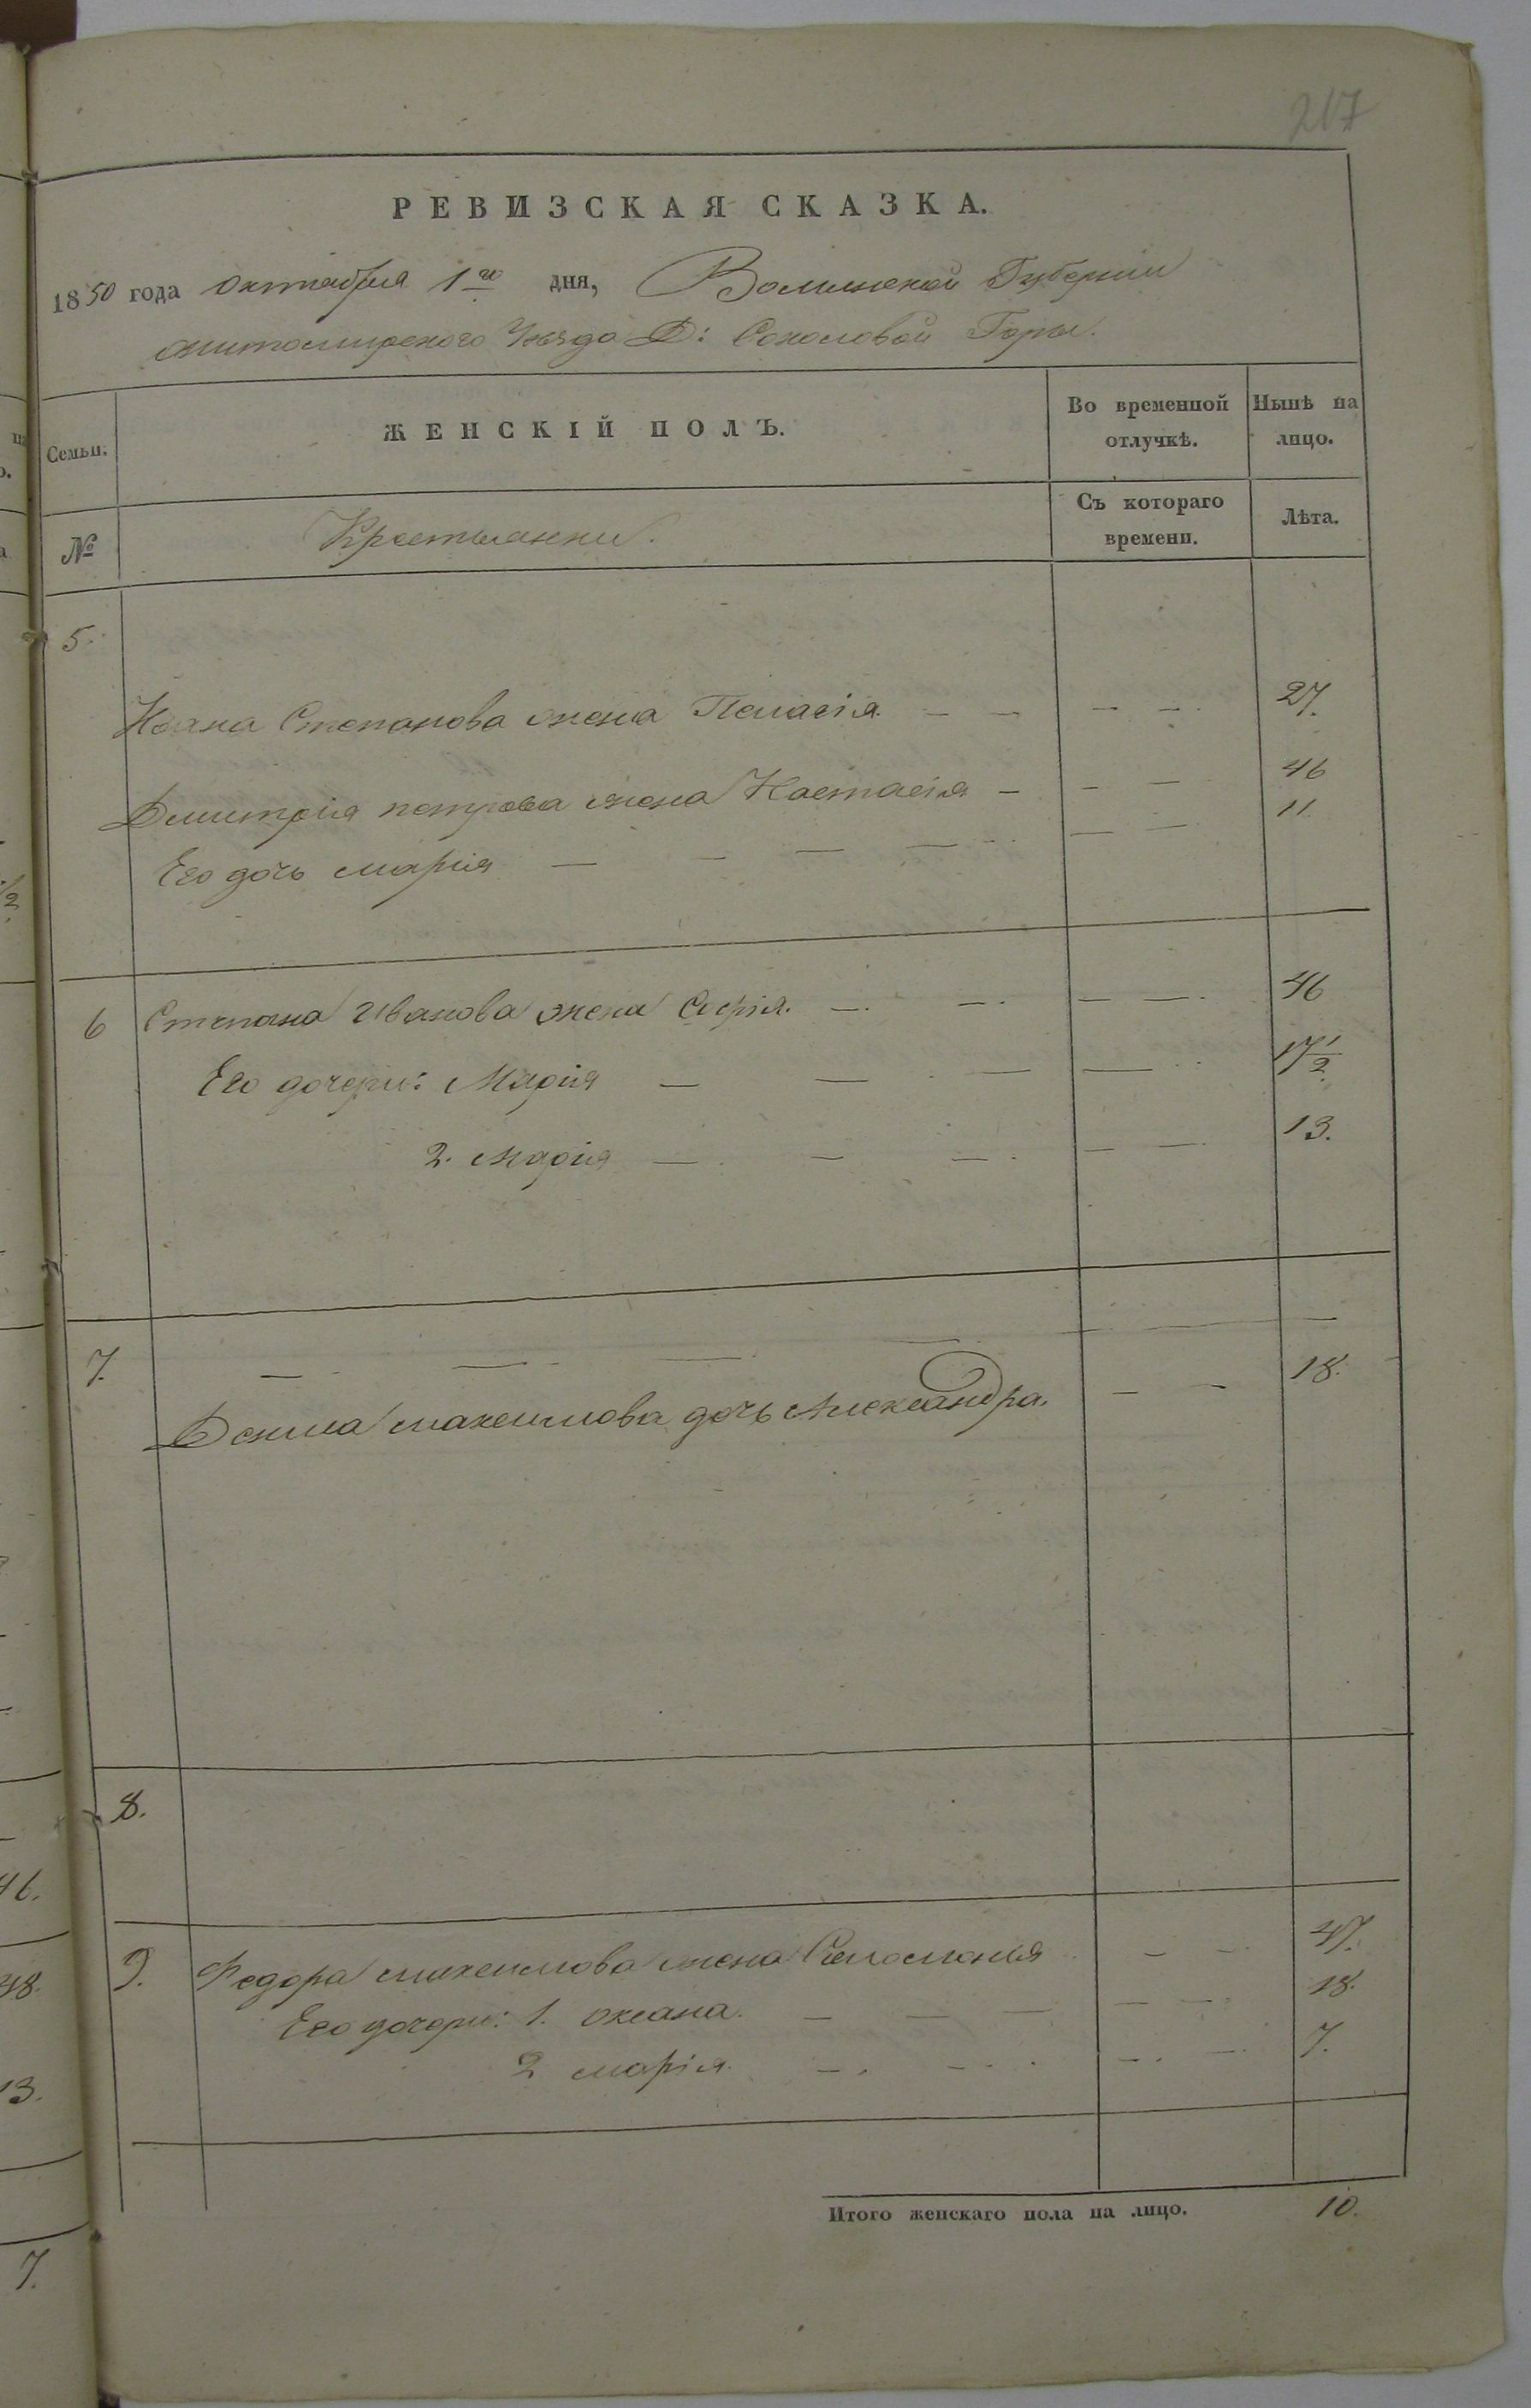 217
РЕВИЗСКАЯ СКАЗКА.
1850 года октября 1го дня, Волынской Губернии
житомирского Уезда Д: Соколовой Горы.
Семьи. ЖЕНСКІЙ ПОЛЪ. Во временной отлучкѣ. Нынѣ на лицо.
№ Крестьянки. Съ котораго времени. Лѣта.
5.
Ивана Степанова жена Пелагія — — — — 27.
Дмитрія петрова жена Настасія — — — 46
Его дочь марія — — — — — — 11
6 Степана Иванова жена Софія. — — — — 46
Его дочери: Марія — — — — 17 1/2
2. Марія — — — — — 13.
7. — — — — — —
Дениса максимова дочь Александра. — — 18.
8.
9. Федора максимова жена — — 47.
Его дочери: 1. оксана. — — — — — 18.
2 марія. — — — — 7.
Итого женскаго пола на лицо. 10.
1/2
46.
48.
13.
7.